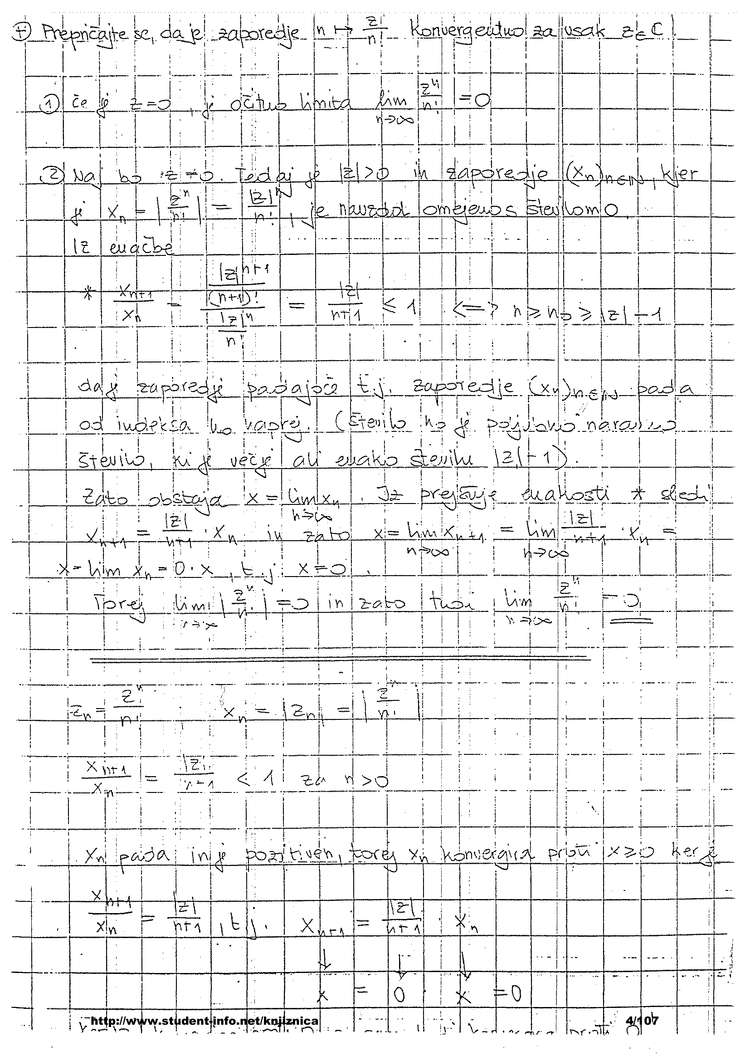 + Prepričajte se, da je zaporedje n ↦ z/n! konvergentno za vsak z ∈ C.
① če je z=0, je očitno limita lim_{n→∞} z^n/n! = 0
② Naj bo z ≠ 0. Tedaj je |z|>0 in zaporedje (x_n)_{n∈N}, kjer
je x_n = |z^n/n!| = |z|^n/n!, je navzdol omejeno s številom 0.
Iz enačbe
* x_{n+1}/x_n = (|z|^{n+1}/(n+1)!)/(|z|^n/n!) = |z|/(n+1) ≤ 1 <=> n ≥ n_0 ≥ |z|-1
da je zaporedje padajoče t.j. zaporedje (x_n)_{n∈N} pada
od indeksa n_0 naprej. (število n_0 je poljubno naravno
število, ki je večje ali enako številu |z|-1).
Zato obstaja x = lim_{n→∞} x_n. Iz prejšnje enakosti * sledi
x_{n+1} = |z|/(n+1) · x_n in zato x = lim_{n→∞} x_{n+1} = lim_{n→∞} |z|/(n+1) · x_n =
x = lim x_n = 0 · x, t.j. x=0.
Torej lim_{n→∞} |z^n/n!| = 0 in zato tudi lim_{n→∞} z^n/n! = 0
z_n = z^n/n! , x_n = |z_n| = |z^n/n!|
x_{n+1}/x_n = |z|/(n+1) < 1 za n>0
x_n pada in je pozitiven, torej x_n konvergira proti x≥0 ker je
x_{n+1}/x_n = |z|/(n+1), t.j. x_{n+1} = |z|/(n+1) · x_n
↓ ↓ ↓
x = 0 · x = 0
http://www.student-info.net/knjiznica 4/107